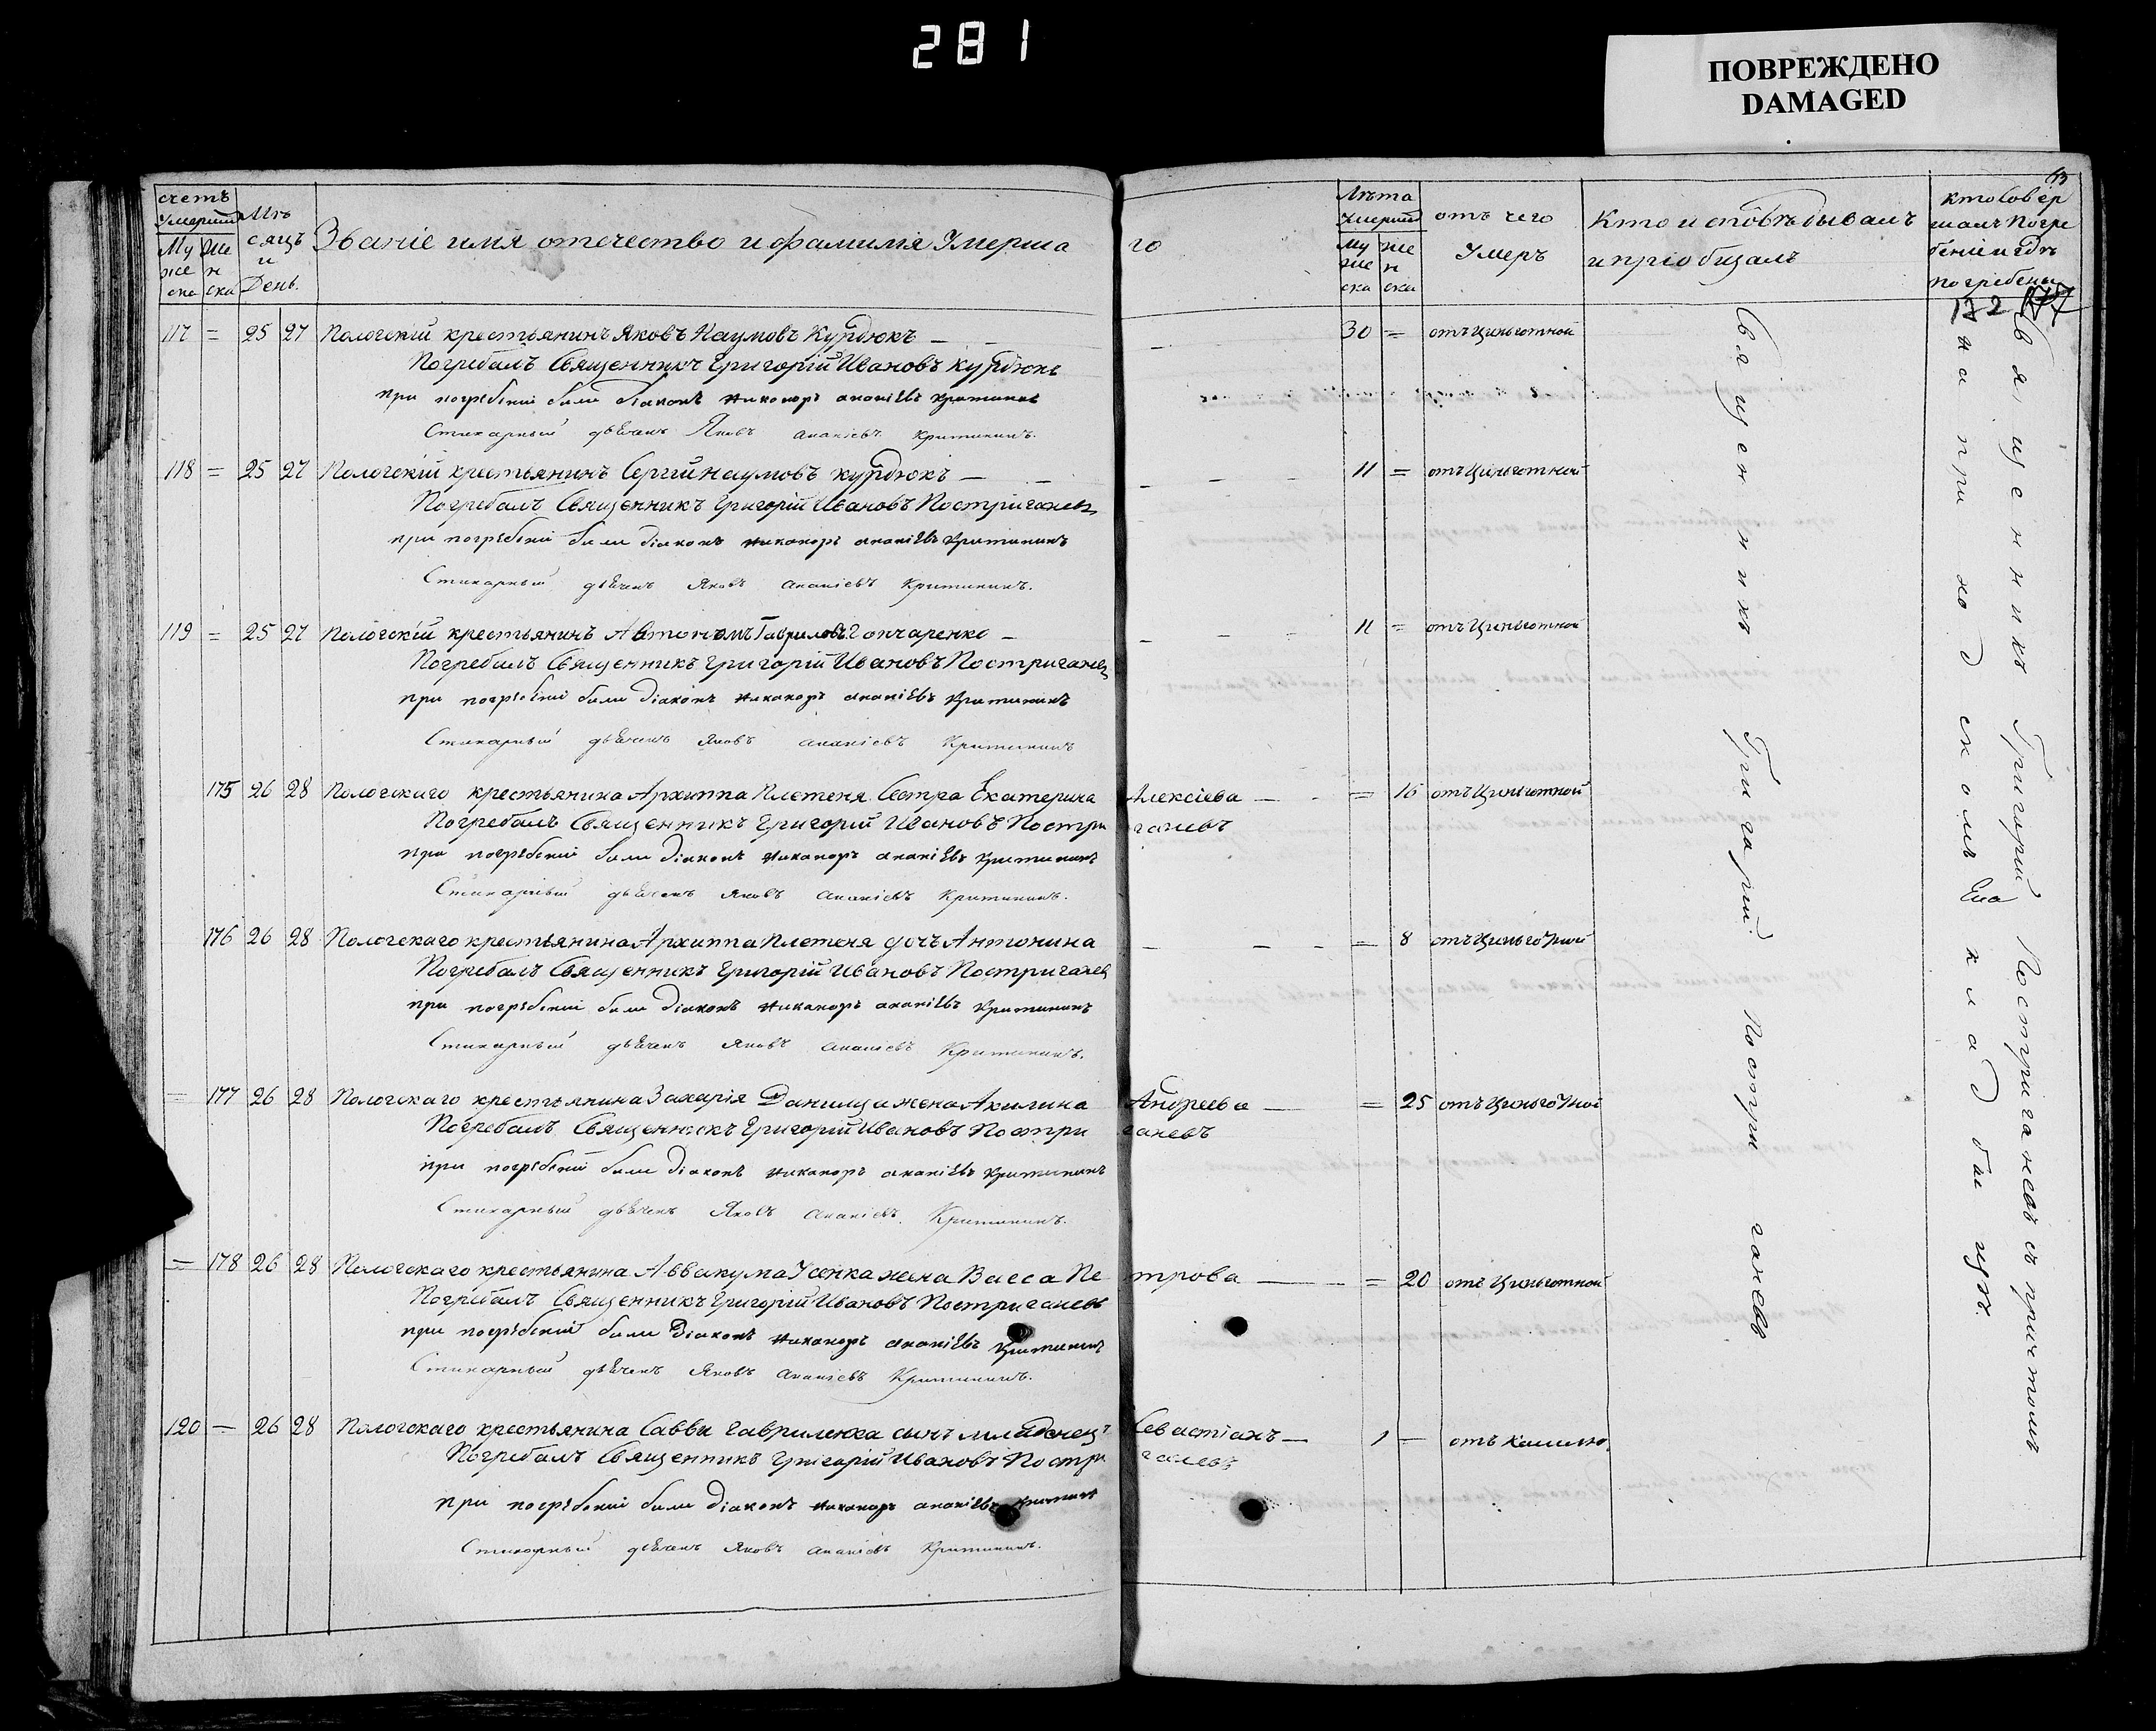 281
ПОВРЕЖДЕНО
DAMAGED
счетъ Умерших Мѣсяцъ и День. Званіе имя отечество и фамилія Умерша го Лѣта Умерших отъ чего Умеръ Кто исповѣдывалъ и пріобщалъ кто Совершалъ Погребеніе и гдѣ погребены
Муже ска Жен ска Муже ска Жен ска
172
117 = 25 27 Пологскій крестьянинъ Яковъ Наумовъ Курдюкъ — 30 = отъ Цынготной
Погребалъ Священникъ Григорій Ивановъ Курдюкъ
при погребеніи были діаконъ Никаноръ ананіевъ Критининъ
Стихарный дьячекъ Яковъ ананіевъ Критининъ.
118 = 25 27 Пологскій крестьянинъ Сергій Наумовъ Курдюкъ — 11 = отъ Цынготной
Погребалъ Священникъ Григорій Ивановъ Постриганевъ
при погребеніи были діаконъ Никаноръ ананіевъ Критининъ
Стихарный дьячекъ Яковъ ананіевъ Критининъ.
119 = 25 27 Пологскій крестьянинъ Автономъ Гавриловъ Гончаренко — 11 = отъ Цынготной
Погребалъ Священникъ Григорій Ивановъ Постриганевъ
при погребеніи были діаконъ Никаноръ ананіевъ Критининъ
Стихарный дьячекъ Яковъ ананіевъ Критининъ
175 26 28 Пологскаго крестьянина Архиппа Плетеня Сестра Екатерина Алексіева — = 16 отъ Цынготной
Погребалъ Священникъ Григорій Ивановъ Постри ганевъ
при погребеніи были діаконъ Никаноръ ананіевъ Критининъ
Стихарный дьячекъ Яковъ ананіевъ Критининъ.
176 26 28 Пологскаго крестьянина Архиппа Плетеня дочь Антонина — = 8 отъ Цынготной
Погребалъ Священникъ Григорій Ивановъ Постриганевъ
при погребеніи были діаконъ Никаноръ ананіевъ Критининъ
Стихарный дьячекъ Яковъ ананіевъ Критининъ.
= 177 26 28 Пологскаго крестьянина Захарія Данища жена Акилина Андреева — = 25 отъ Цынготной
Погребалъ Священникъ Григорій Ивановъ Постри ганевъ
при погребеніи были діаконъ Никаноръ ананіевъ Критининъ
Стихарный дьячекъ Яковъ ананіевъ Критининъ.
= 178 26 28 Пологскаго крестьянина Аввакума Усенка жена Васса Пе трова — = 20 отъ Цынготной
Погребалъ Священникъ Григорій Ивановъ Постриганевъ
при погребеніи были діаконъ Никаноръ ананіевъ Критининъ
Стихарный дьячекъ Яковъ ананіевъ Критининъ.
120 — 26 28 Пологскаго крестьянина Саввы Гавриленка сынъ младенецъ Севастіанъ — 1 — отъ кашлю.
Погребалъ Священникъ Григорій Ивановъ Постри ганевъ
при погребеніи были діаконъ Никаноръ ананіевъ Критининъ
Стихарный дьячекъ Яковъ ананіевъ Критининъ.
Священникъ Григорій Постриганевъ
Священникъ Григорій Постриганевъ съ причтомъ
на приходскомъ кладбищѣ.